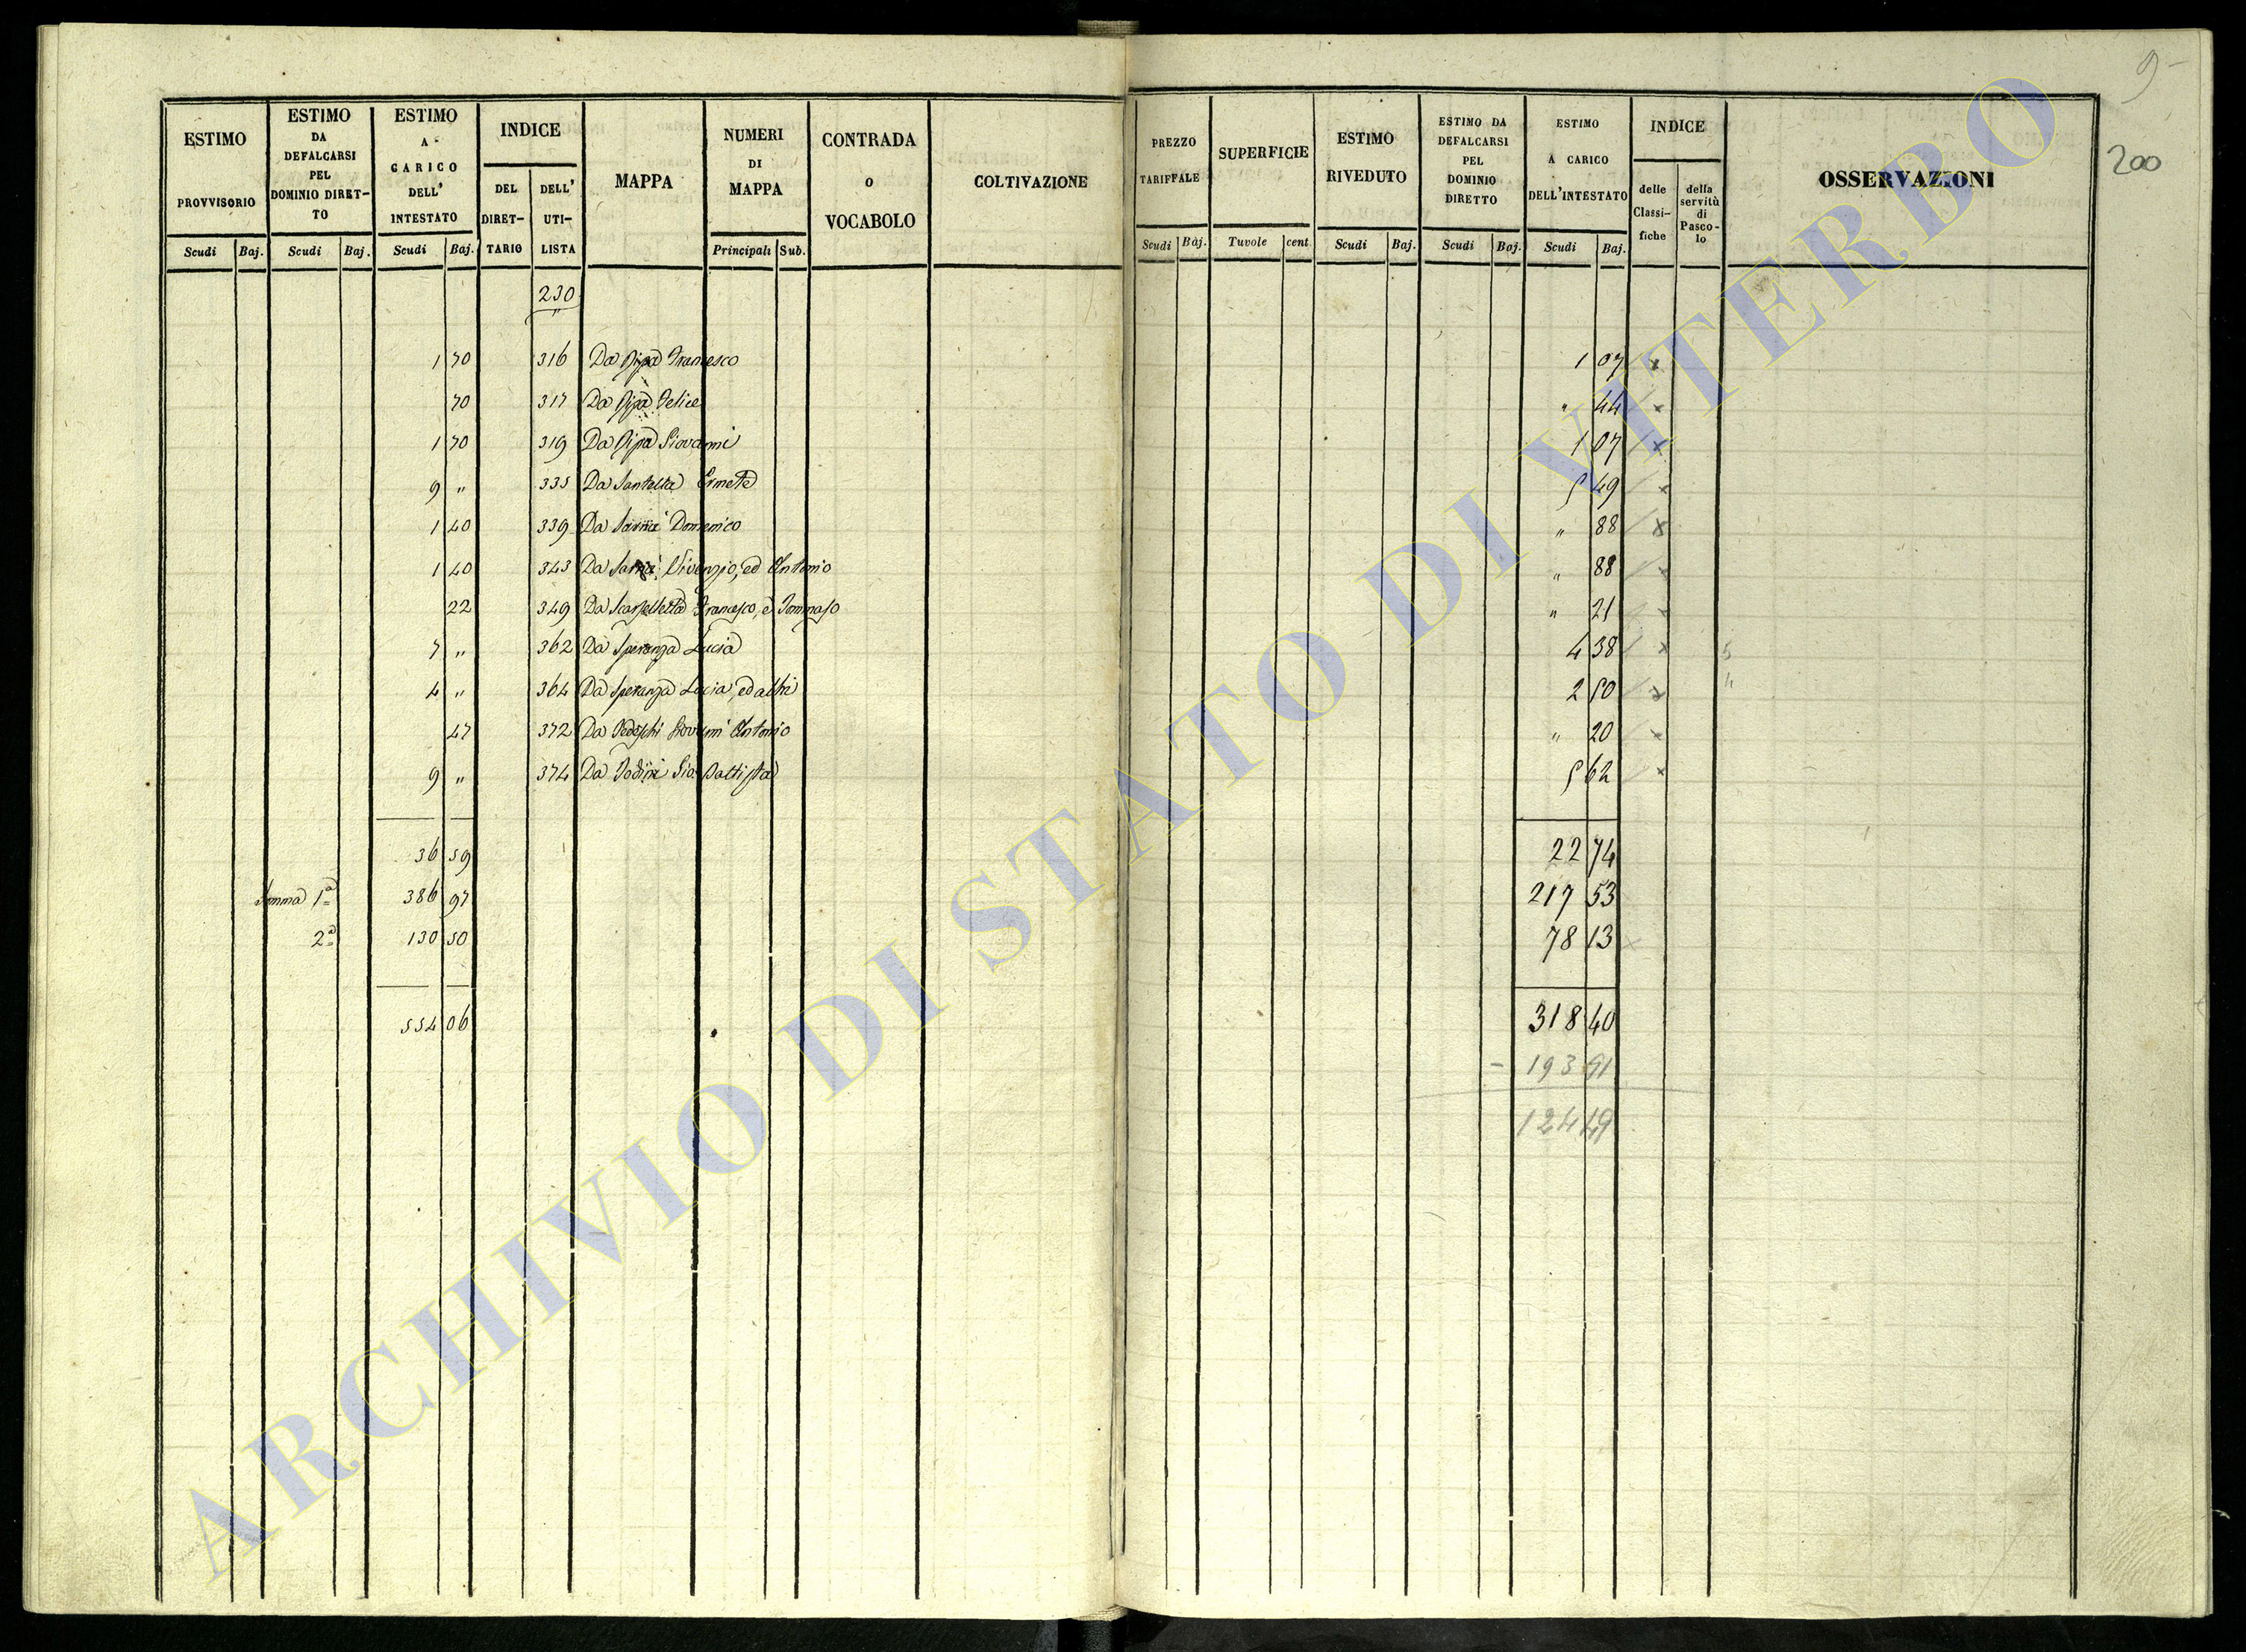 9-
200
ESTIMO PROVVISORIO
ESTIMO DA DEFALCARSI PEL DOMINIO DIRETTO
ESTIMO A CARICO DELL' INTESTATO
INDICE
DEL DIRETTARIO
DELL' UTILISTA
MAPPA
NUMERI DI MAPPA
CONTRADA o VOCABOLO
COLTIVAZIONE
PREZZO TARIFFALE
SUPERFICIE
ESTIMO RIVEDUTO
ESTIMO DA DEFALCARSI PEL DOMINIO DIRETTO
ESTIMO A CARICO DELL'INTESTATO
INDICE
delle Classifiche
della servitù di Pascolo
OSSERVAZIONI
Scudi Baj. Scudi Baj. Scudi Baj. Principali Sub. Scudi Baj. Tavole cent. Scudi Baj. Scudi Baj. Scudi Baj.
230
1 70 316 Da Ripa Francesco 1 07 x
70 317 Da Ripa Felice " 44 x
1 70 319 Da Ripa Giovanni 1 07 x
9 " 335 Da Santella Ermete 5 49 x
1 40 339 Da Domenico " 88 x
1 40 343 Da Vivenzio, ed Antonio " 88 x
22 349 Da Scarpelletta Francesco, e Tommaso " 21 x
7 " 362 Da Speranza Lucia 4 38 x 5
4 " 364 Da Speranza Lucia, ed altri 2 50 x 4
47 372 Da Tedeschi Giovanni Antonio " 20 x
9 " 374 Da Gio Battista 5 62 x
36 59 22 74
Somma 1ª 386 97 217 53
2ª 130 50 78 13 x
554 06 318 40
- 193 91
124 49
ARCHIVIO DI STATO DI VITERBO